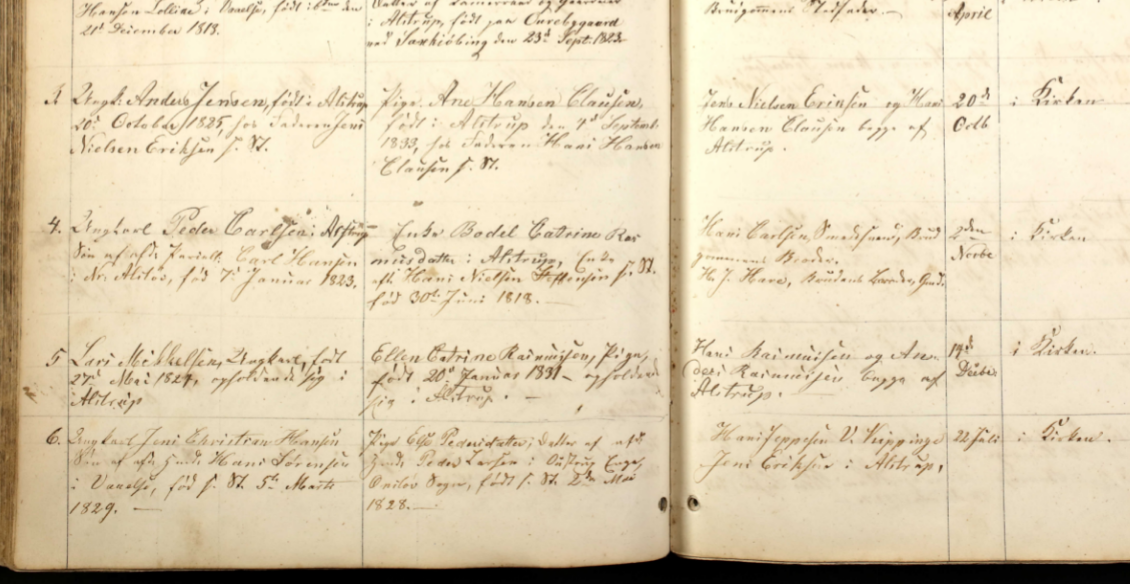 Hansen Lolliae i Vaalse, født i den
21 December 1818.
i Alstrup, født paa Ourebygaard
ved Saxkiøbing den 23d Sept. 1823
Brudgommens Stedfader. —
April
3. Ungk. Anders Jensen, født i Alstrup
20d October 1825, hos Faderen Jens
Nielsen Eriksen s. St.
Pige Ane Hansen Clausen,
født i Alstrup den 7d Septemb.
1833, hos Faderen Hans Hansen
Clausen s. St.
Jens Nielsen Eriksen og Hans
Hansen Clausen begge af
Alstrup.
20d
Octb
i Kirken
4. Ungkarl Peder Carlsen i
Søn af afdø Carl Hansen
i Nr. Alslev, fød 7d Januar 1823.
Enke Bodel Catrine Ras
musdatter i Alstrup, Enke
eft. Hans Nielsen Steffensen s. St.
fød 30te Juni 1818. —
Hans Carlsen, Brud
gommens Broder.
H. J. Hare, Brudens
2den
Novbe
i Kirken
5 Lars Mikkelsen, Ungkarl, født
27de Mai 1824, opholdende sig i
Alstrup
Ellen Catrine Rasmusen, Pige,
født 20d Januar 1831 - opholden
sig i Alstrup. —
Hans Rasmusen og An-
ders Rasmusen begge af
Alstrup.
14d
Decbe
i Kirken.
6. Ungkarl Jens Christian Hansen
Søn af afdø Hans Sørensen
i Vaalse, fød s. St. 5te Marts
1829. —
Pige Else Pedersdatter, Datter af afdø
Peder Larsen i Enge,
Onslev Sogn, født s. St. 2den Mai
1828. —
Hans Jeppesen V.
Jens Eriksen i Alstrup,
22 Juli
i Kirken.